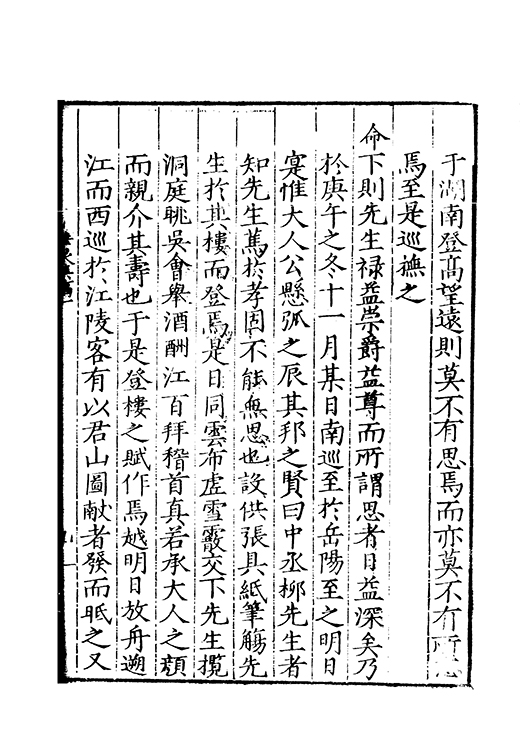 于湖南登髙望遠則莫不有思焉而亦莫不有所思
焉至是巡撫之
命下則先生禄益崇爵益尊而所謂思者日益深矣乃
於庚午之冬十一月某日南巡至於岳陽至之明日
寔惟大人公懸弧之辰其邦之賢曰中丞柳先生者
知先生篤於孝固不能無思也設供張具紙筆觴先
生於其樓而登焉是日同雲布虚雪霰交下先生攬
洞庭眺吳會舉酒酬江百拜稽首真若承大人之顔
而親介其壽也于是登樓之賦作焉越明日放舟遡
江而西巡於江陵客有以君山圖献者發而眂之又